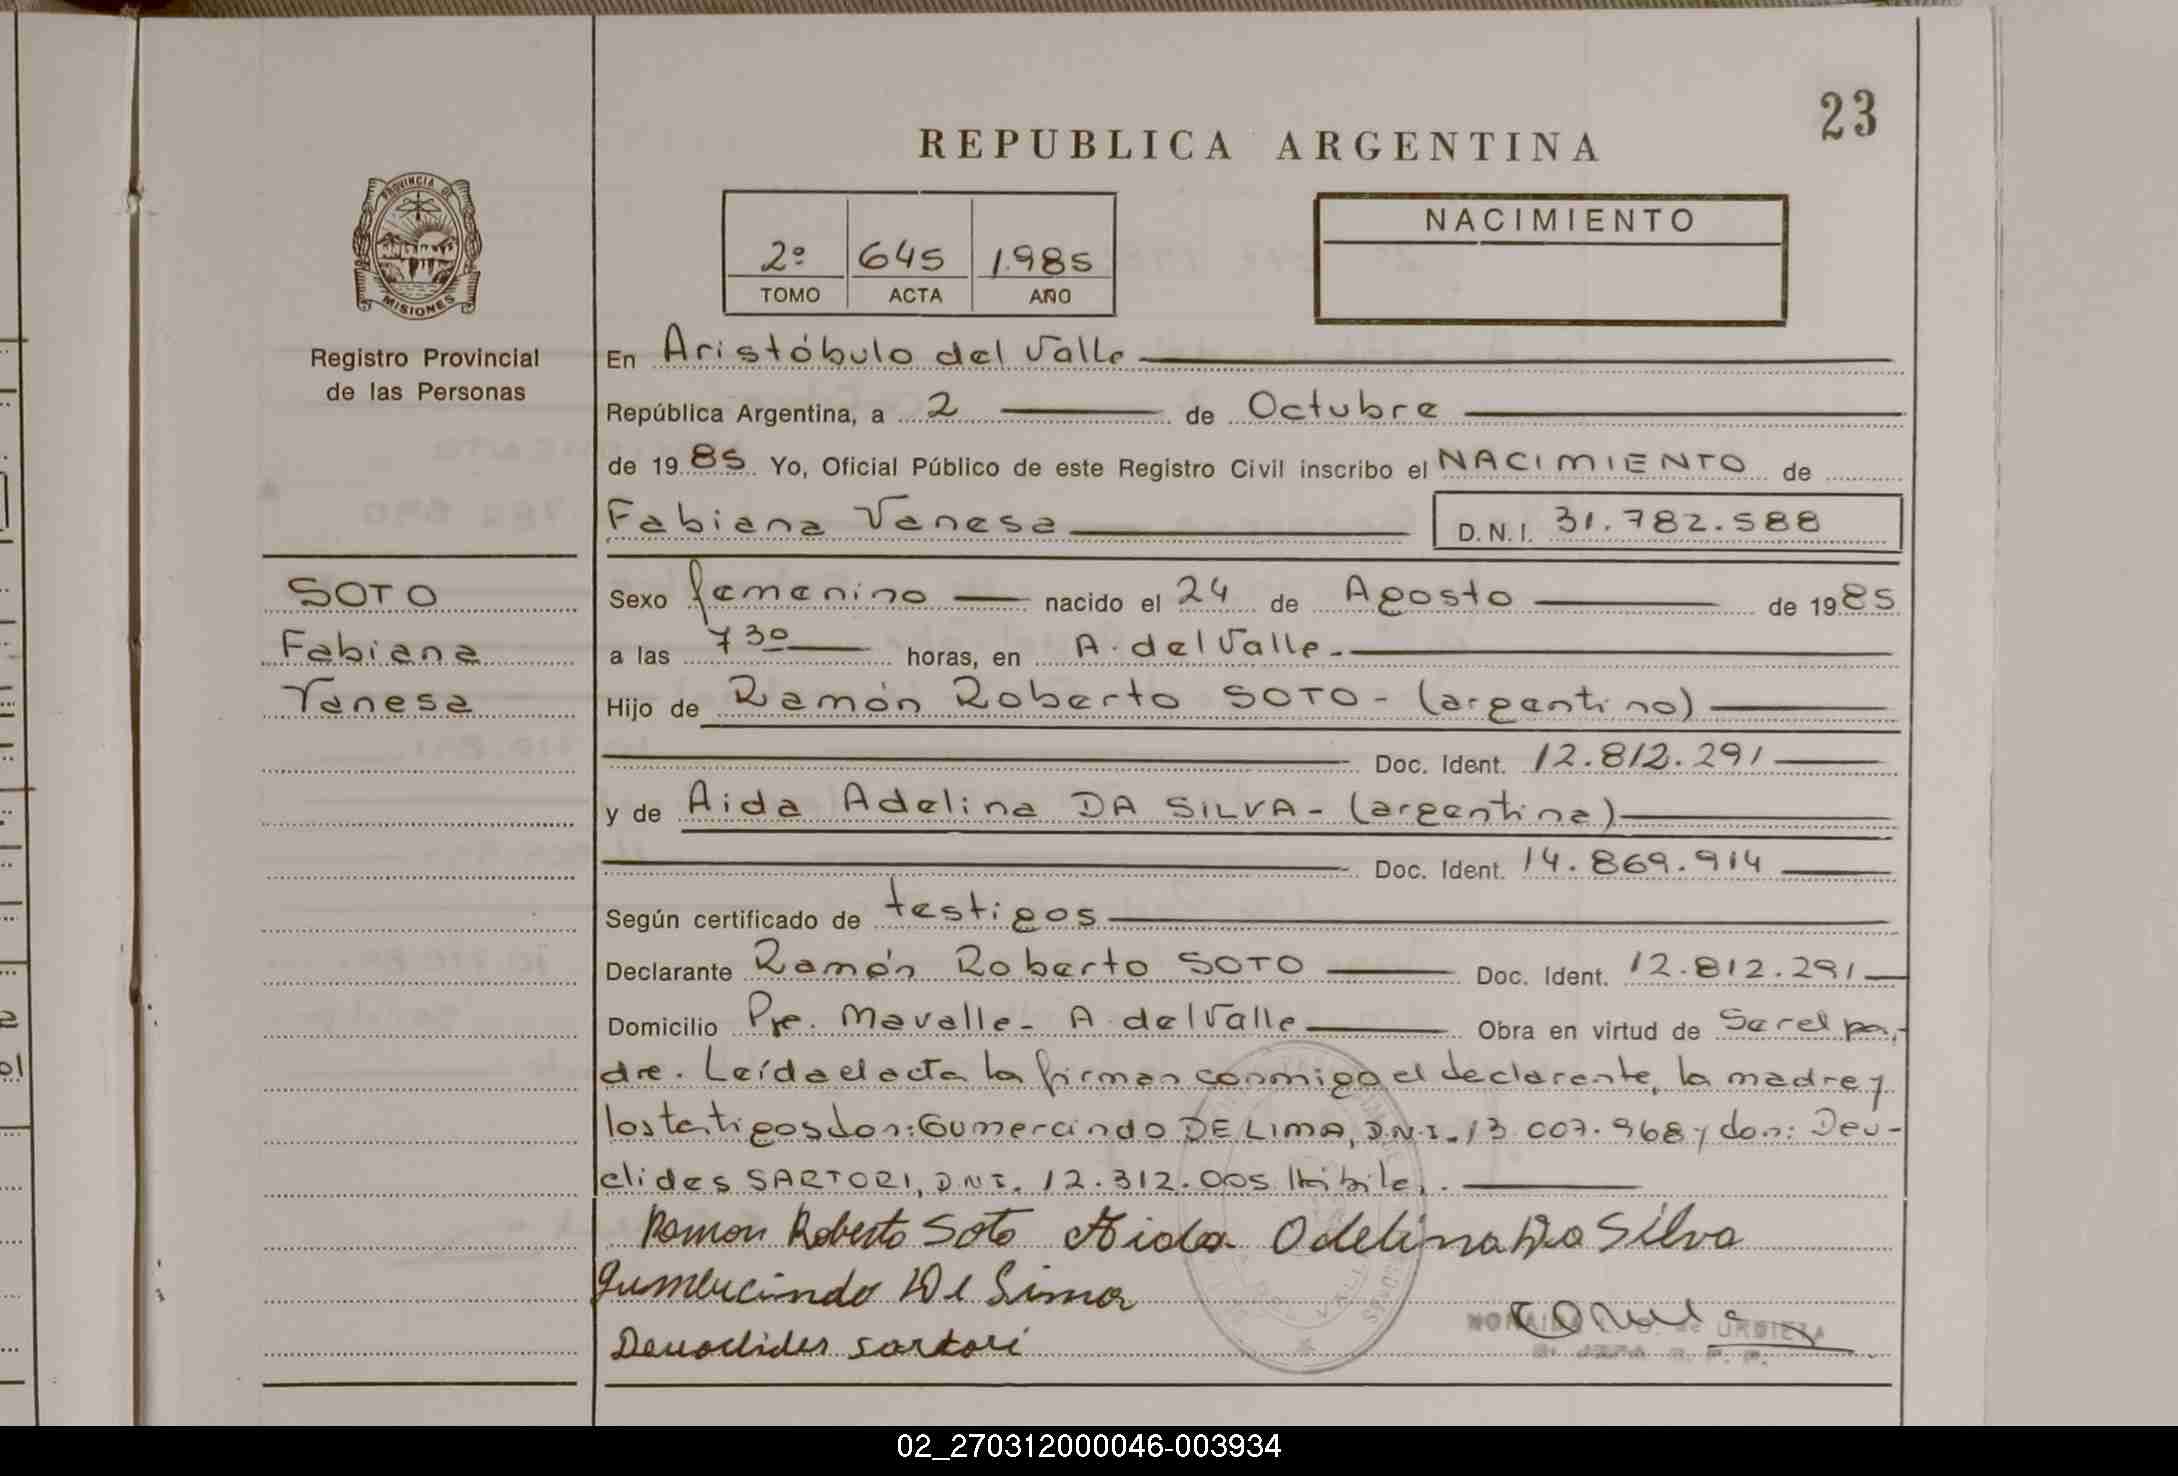 23
REPUBLICA ARGENTINA
PROVINCIA DE
MISIONES
Registro Provincial
de las Personas
2º 645 1.985
TOMO ACTA AÑO
NACIMIENTO
En Aristóbulo del Valle
República Argentina, a 2 de Octubre
de 19 85 Yo, Oficial Público de este Registro Civil inscribo el NACIMIENTO de
Fabiana Vanesa D.N.I. 31.782.588
SOTO
Fabiana
Vanesa
Sexo femenino nacido el 24 de Agosto de 19 85
a las 7 30 horas, en A. del Valle.
Hijo de Ramón Roberto SOTO - (argentino)
Doc. Ident. 12.812.291
y de Aida Adelina DA SILVA - (argentina)
Doc. Ident. 14.869.914
Según certificado de testigos
Declarante Ramón Roberto SOTO Doc. Ident. 12.812.291
Domicilio Pje. Mavalle - A. del Valle Obra en virtud de Ser el pa-
dre. Leída el acta la firman conmigo el declarante, la madre y
los testigos don: Gumercindo DE LIMA, D.N.I. 13.007.968 y don: Deu-
clides SARTORI, D.N.I. 12.312.005
Ramon Roberto Soto Aida Odelina Da Silva
Gumercindo De Lima
Deuoclides sartori
02_270312000046-003934